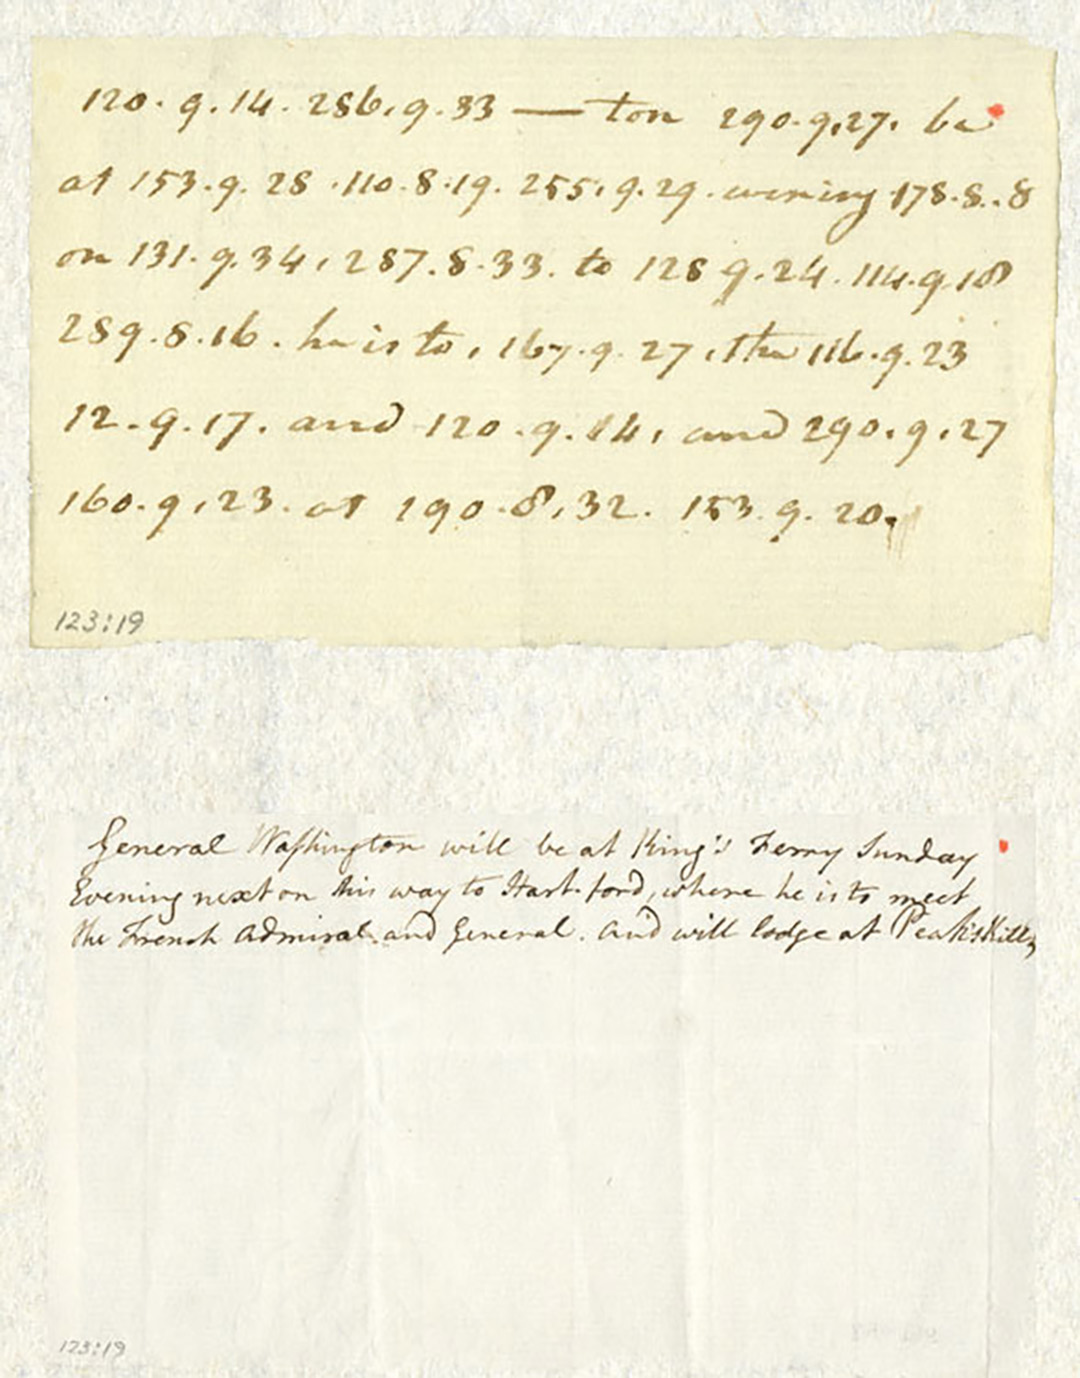 120. 9. 14. 286. 9. 33 — ton 290. 9. 27. be
at 153. 9. 28. 110. 8. 19. 255. 9. 29. evening 178. 8.. 8
on 131. 9. 34. 287. 8. 33. to 128 9. 24. 114. 9. 18
289. 8. 16. he is to, 167. 9. 27. the 116. 9. 23
12. 9. 17. and 120. 9. 14. and 290. 9. 27
160. 9. 23. at 190. 8. 32. 153. 9. 20.
123:19
General Washington will be at King's Ferry Sunday
Evening next on his way to Hart ford, where he is to meet
the French Admiral and General. And will lodge at Peak's Kill
123:19